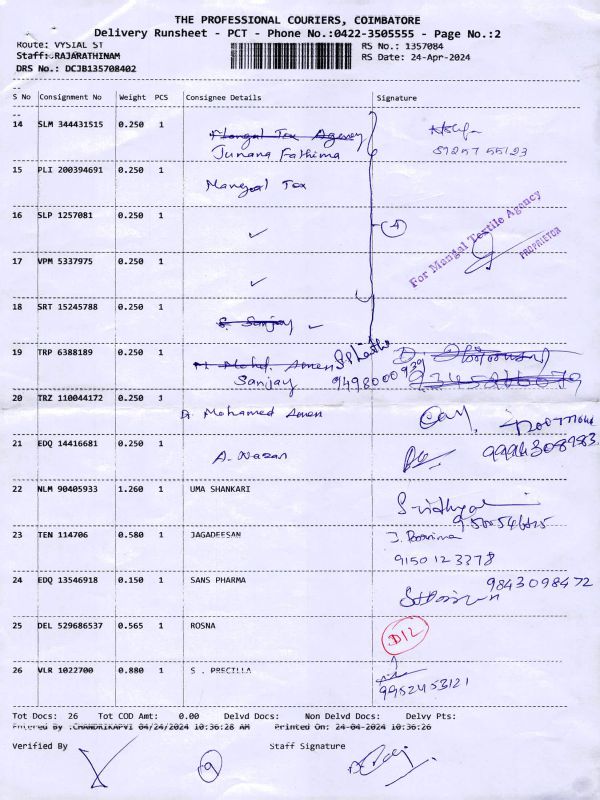 THE PROFESSIONAL COURIERS, COIMBATORE
Delivery Runsheet - PCT - Phone No.:0422-3505555 - Page No.:2
Route: VYSIAL ST RS No.: 1357084
Staff: RAJARATHINAM RS Date: 24-Apr-2024
DRS No.: DCJB135708402
S No Consignment No Weight PCS Consignee Details Signature
14 SLM 344431515 0.250 1 Mangal Tex Agency
Junana Fathima
15 PLI 200394691 0.250 1 Mangal Tex
16 SLP 1257081 0.250 1 ✓
For Mangal Textile Agency
PROPRIETOR
17 VPM 5337975 0.250 1 ✓
18 SRT 15245788 0.250 1 S. Sanjay ✓
19 TRP 6388189 0.250 1 Mohd. Amen
Sanjay 9498000939
20 TRZ 110044172 0.250 1 D. Mohamed Amen
21 EDQ 14416681 0.250 1 A. Nasan 9994308983
22 NLM 90405933 1.260 1 UMA SHANKARI
23 TEN 114706 0.580 1 JAGADEESAN J. Poornima
9150123378
24 EDQ 13546918 0.150 1 SANS PHARMA 9843098472
25 DEL 529686537 0.565 1 ROSNA D12
26 VLR 1022700 0.880 1 S . PRECILLA
9952453121
Tot Docs: 26 Tot COD Amt: 0.00 Delvd Docs: Non Delvd Docs: Delvy Pts:
Entered By :CHANDRIKAPVI 04/24/2024 10:36:28 AM Printed On: 24-04-2024 10:36:26
Verified By Staff Signature